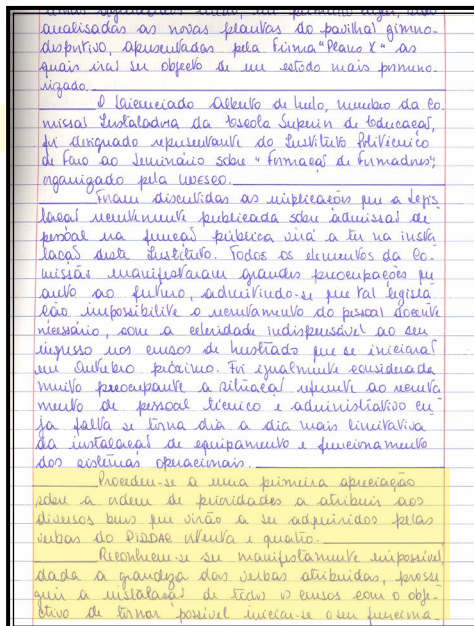 analisadas as novas plantas do pavilhão gimno-
desportivo, apresentadas pela Firma "Plano X" as
quais irão ser objecto de um estudo mais pormeno-
rizado.
O Licenciado Alberto de Melo, membro da Co-
missão Instaladora da Escola Superior de Educação,
foi designado representante do Instituto Politécnico
de Faro ao Seminário sobre "Formação de Formadores",
organizado pela UNESCO.
Foram discutidas as implicações que a legis-
lação recentemente publicada sobre admissão de
pessoal na função pública virá a ter na insta-
lação deste Instituto. Todos os elementos da Co-
missão manifestaram grandes preocupações qu
anto ao futuro, admitindo-se que tal legisla-
ção impossibilite o recrutamento do pessoal docente
necessário, com a celeridade indispensável ao seu
ingresso nos cursos de mestrado que se iniciarão
em Outubro próximo. Foi igualmente considerada
muito preocupante a situação referente ao recruta
mento de pessoal técnico e administrativo cu-
ja falta se torna dia a dia mais limitativa
da instalação de equipamento e funcionamento
dos sistemas operacionais.
Procedeu-se a uma primeira apreciação
sobre a ordem de prioridades a atribuir aos
diversos bens que virão a ser adquiridos pelas
verbas do PIDDAC oitenta e quatro.
Reconheceu-se ser manifestamente impossível,
dada a grandeza das verbas atribuídas, prosse-
guir a instalação de todos os cursos com o obje-
ctivo de tornar possível iniciar-se o seu funciona-